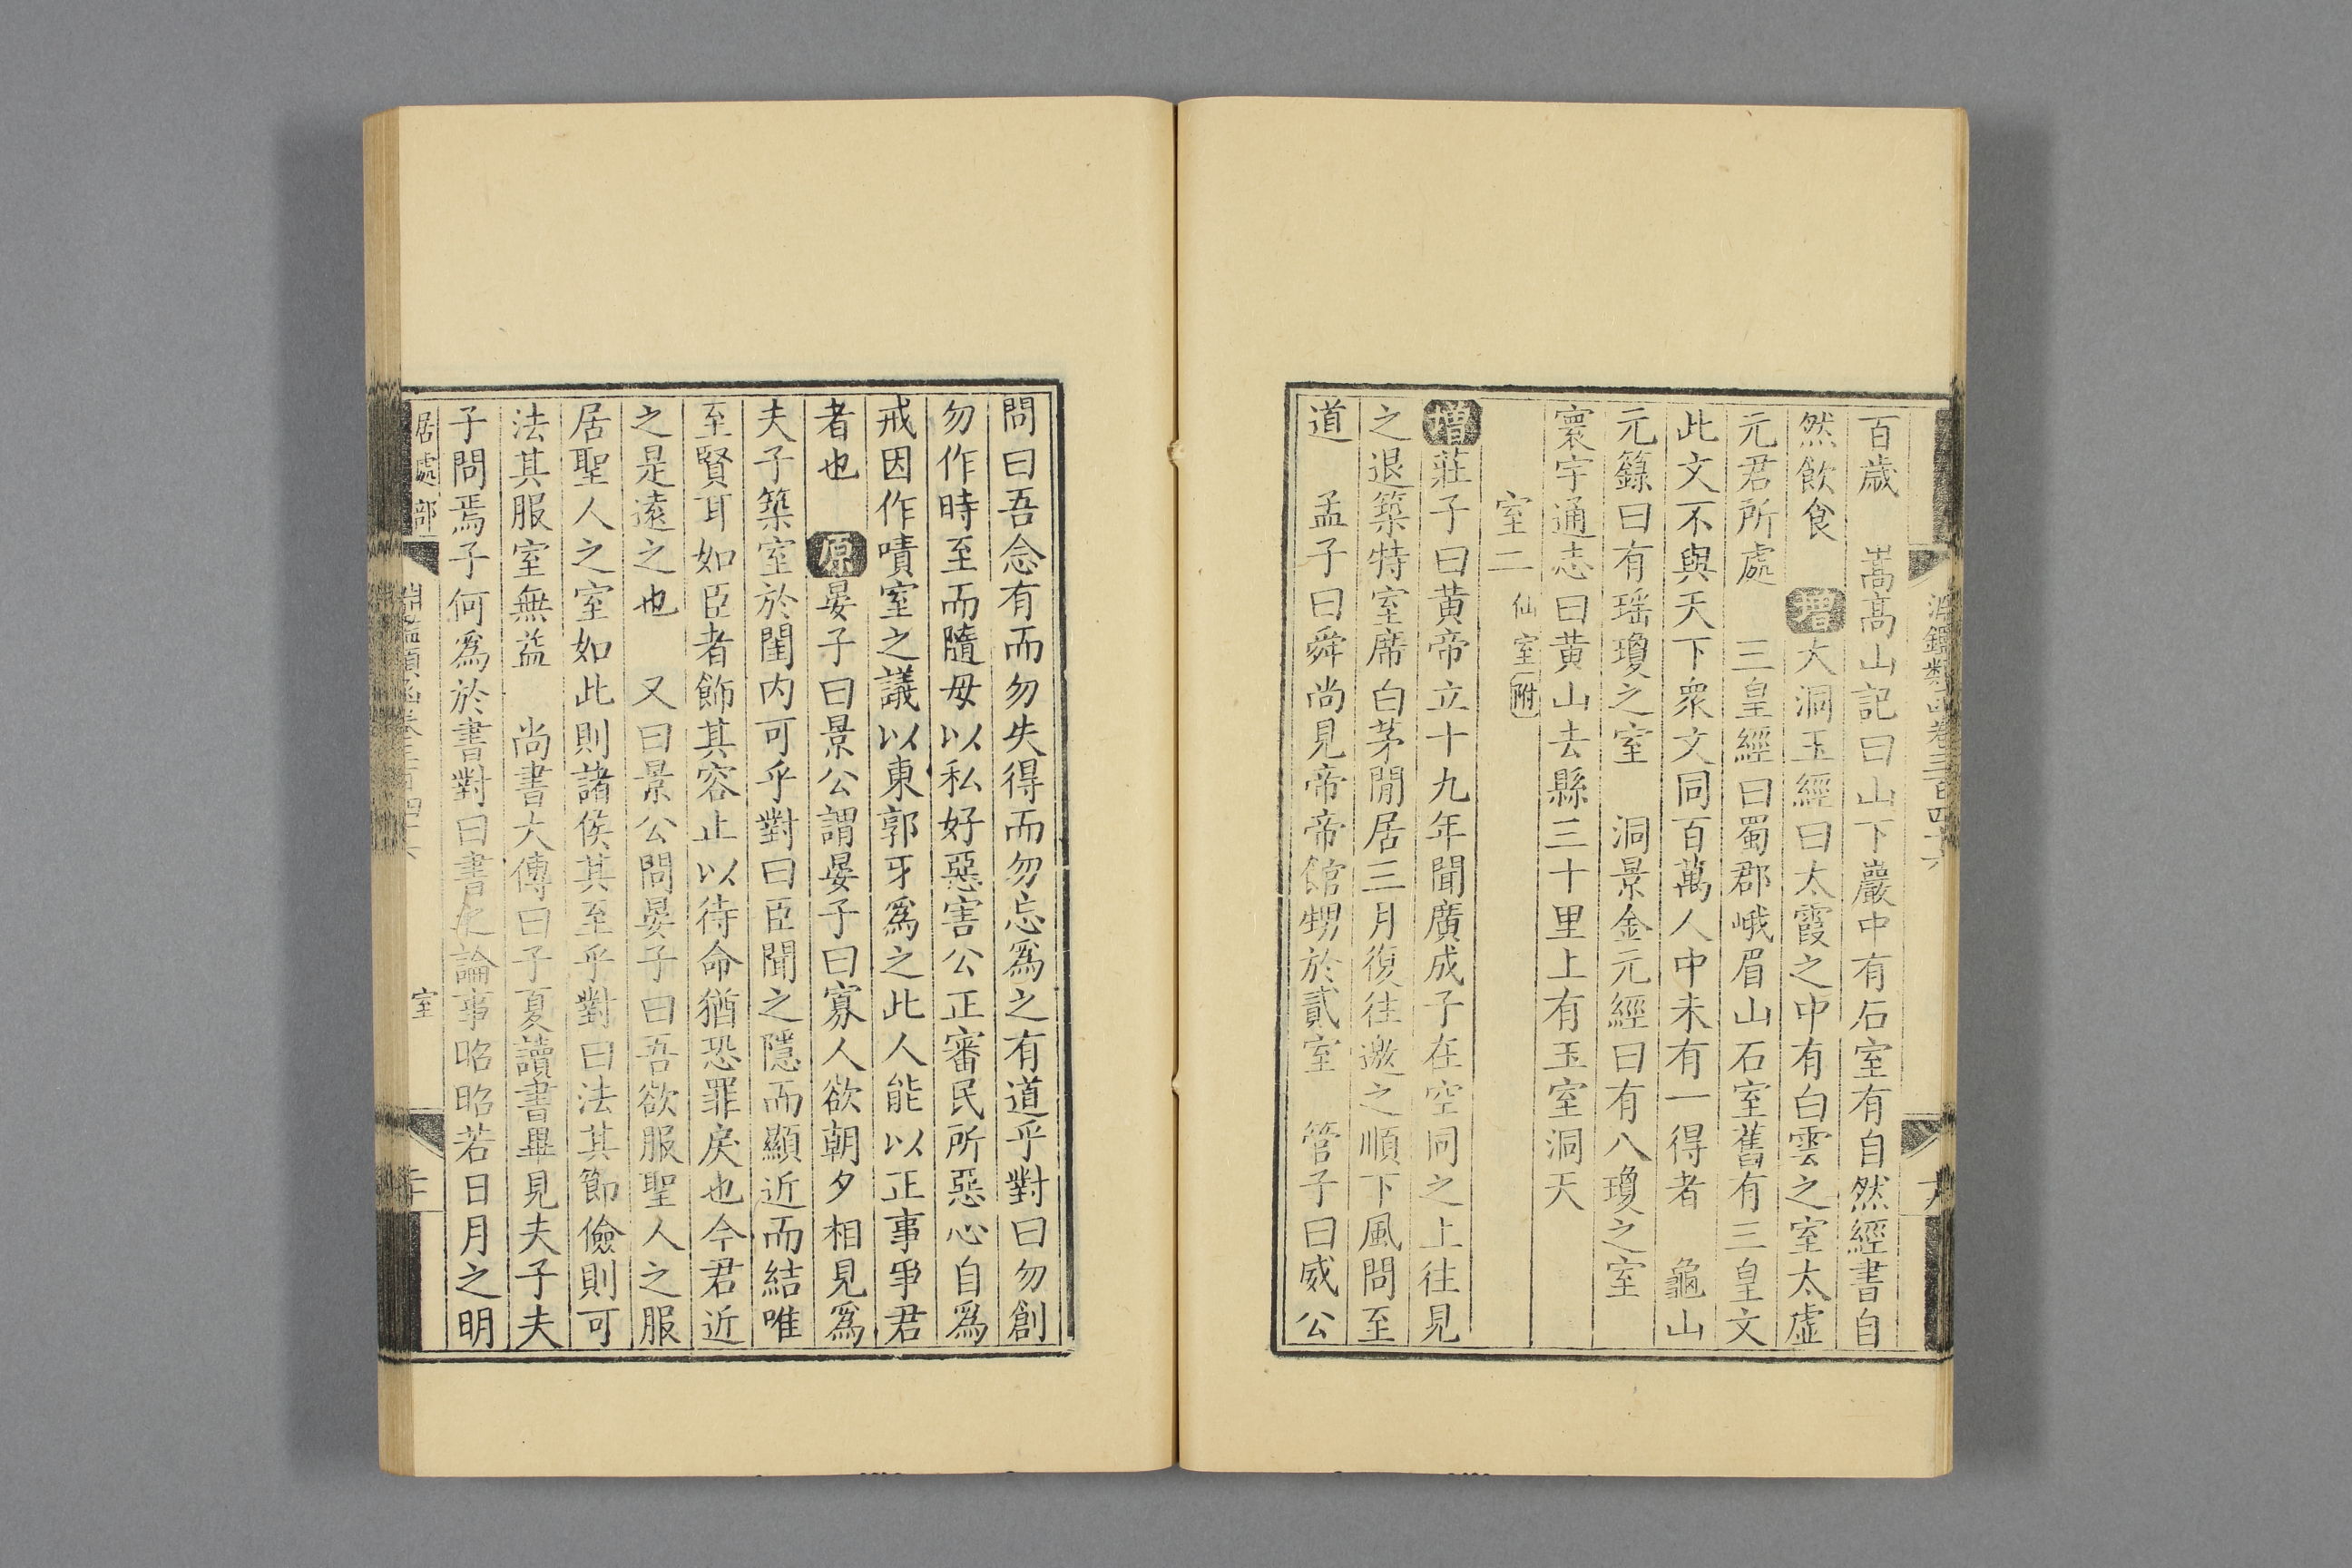 淵鑑類函卷三百四十六
百歲　嵩高山記曰山下巖中有石室有自然經書自
然飲食　增大洞玉經曰太霞之中有白雲之室太虛
元君所處　三皇經曰蜀郡峨眉山石室舊有三皇文
此文不與天下衆文同百萬人中未有一得者　龜山
元籙曰有瑤瓊之室　洞景金元經曰有八瓊之室
寰宇通志曰黄山去縣三十里上有玉室洞天
室二 仙室附
增莊子曰黄帝立十九年聞廣成子在空同之上往見
之退築特室席白茅閒居三月復往邀之順下風問至
道　孟子曰舜尚見帝帝館甥於貳室　管子曰威公
問曰吾念有而勿失得而勿忘爲之有道乎對曰勿創
勿作時至而隨毋以私好惡害公正審民所惡心自爲
戒因作嘖室之議以東郭牙爲之此人能以正事爭君
者也　原晏子曰景公謂晏子曰寡人欲朝夕相見爲
夫子築室於閨内可乎對曰臣聞之隱而顯近而結唯
至賢耳如臣者飾其容止以待命猶恐罪戾也今君近
之是遠之也　又曰景公問晏子曰吾欲服聖人之服
居聖人之室如此則諸侯其至乎對曰法其節儉則可
法其服室無益　尚書大傳曰子夏讀書畢見夫子夫
子問焉子何爲於書對曰書之論事昭昭若日月之明
居處部　淵鑑類函卷三百四十六　室　二十